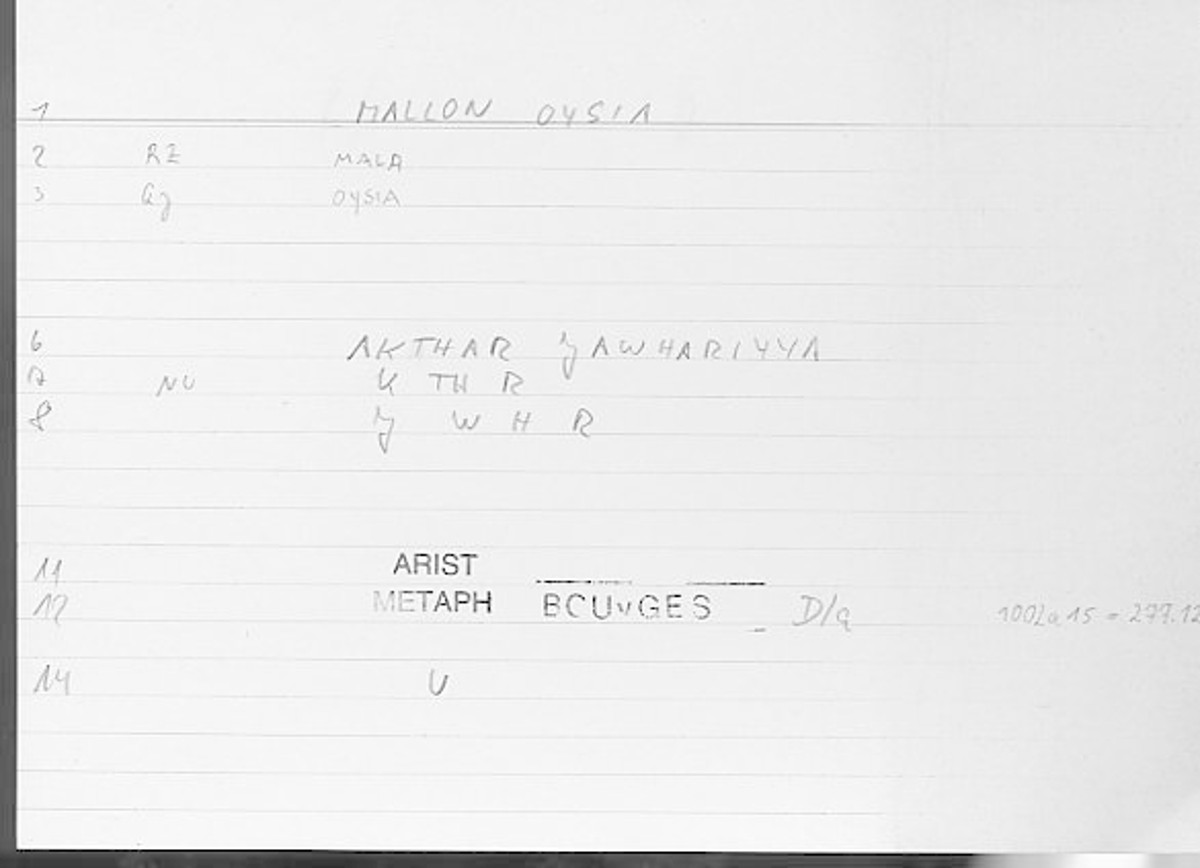 1 MALLON OYSIA
2 RE MALA
3 Gj OYSIA
6 AKTHAR ğAWHARIYYA
7 NU K TH R
8 ğ W H R
11 ARIST
12 METAPH BOUYGES D/a 1002a15 = 277.12
14 U